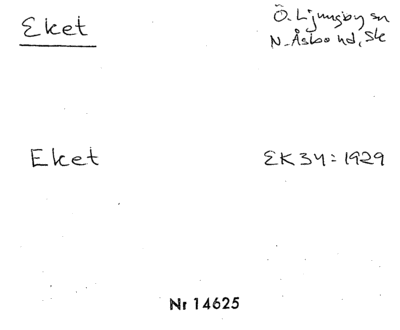 Eket
Ö. Ljungby sn
N. Åsbo hd, Sk
Eket
EK 34:1929
Nr 14625